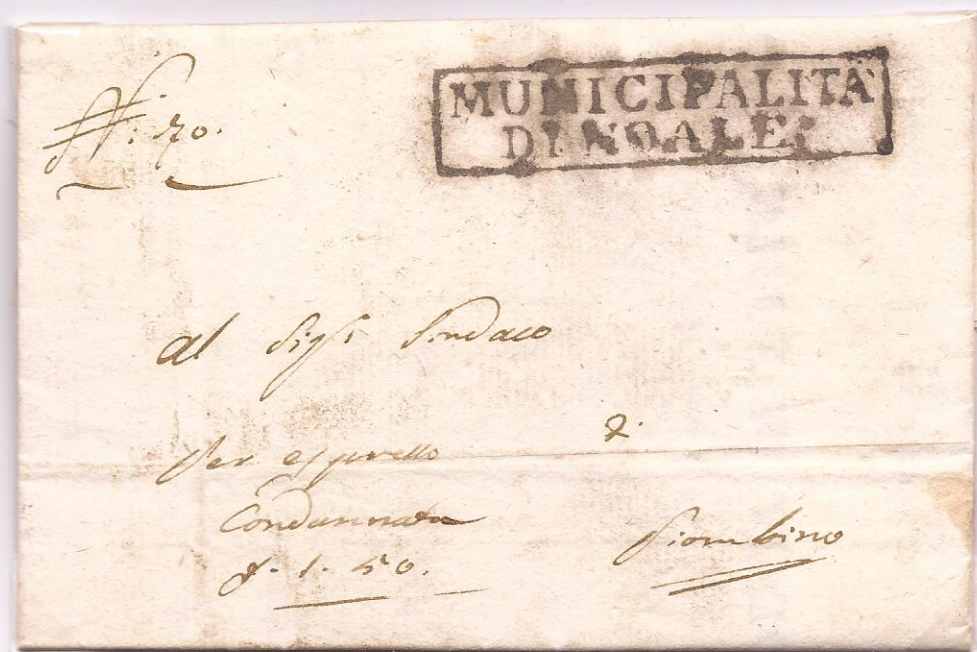 N: 70.
MUNICIPALITÀ
DI NOALE.
al Sigr Sindaco
Per espresso
Condannata
1. 50.
Piombino